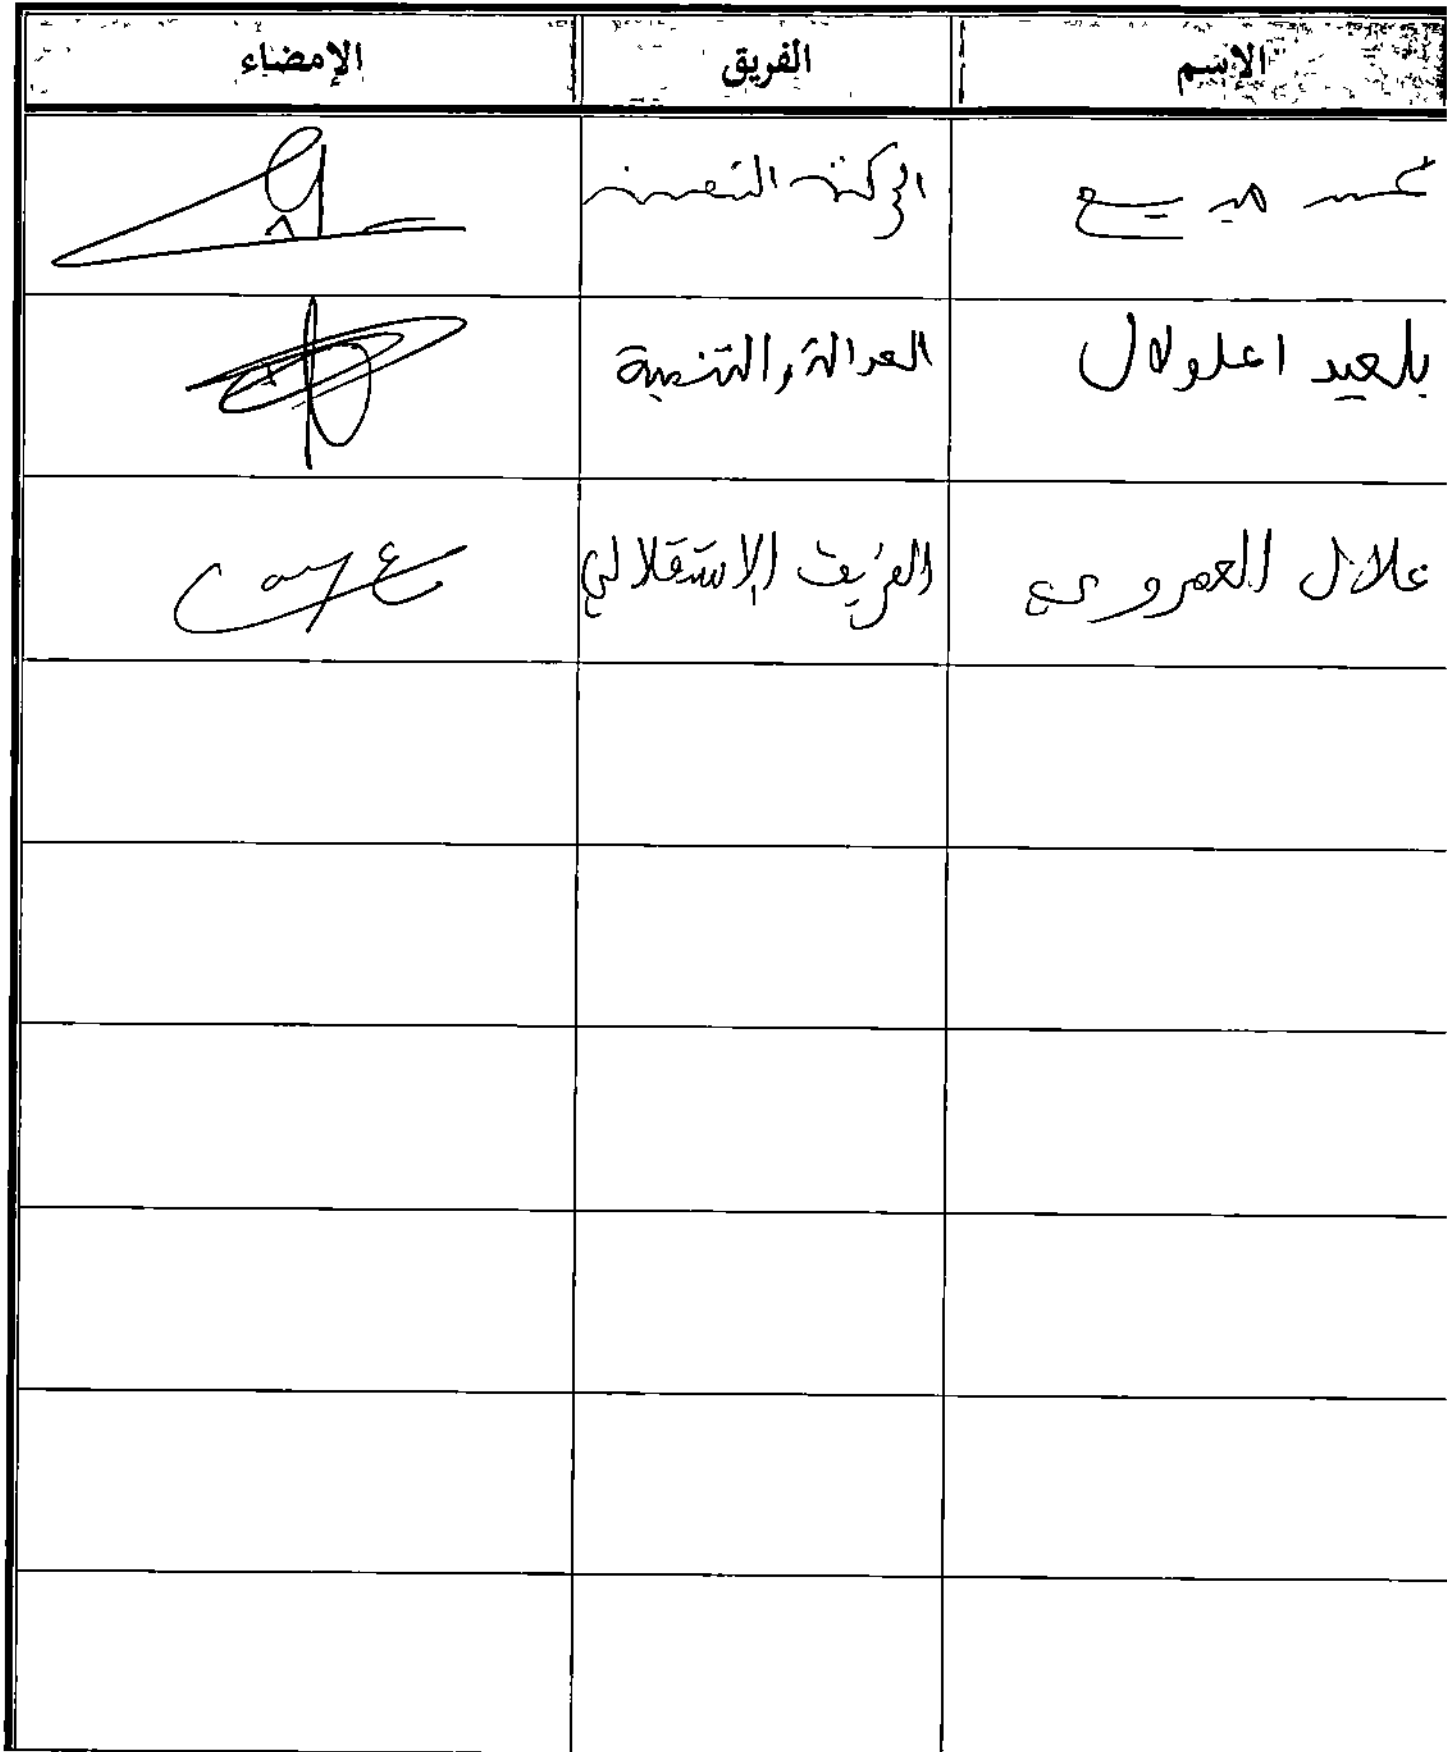 الإسم الفريق الإمضاء
الحركة الشعبية
بلعيد اعلولال العدالة والتنمية
علال العمروي الفريق الإستقلالي